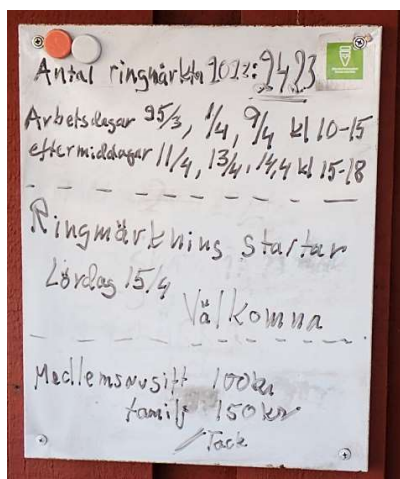 Antal ringmärkta 2022: 9423
Arbetsdagar 25/3, 1/4, 9/4 kl 10-15
eftermiddagar 11/4, 13/4, 14,4 kl 15-18
Ringmärkning startar
Lördag 15/4
Välkomna
Medlemsavgift 100kr
familj 150kr
/Tack